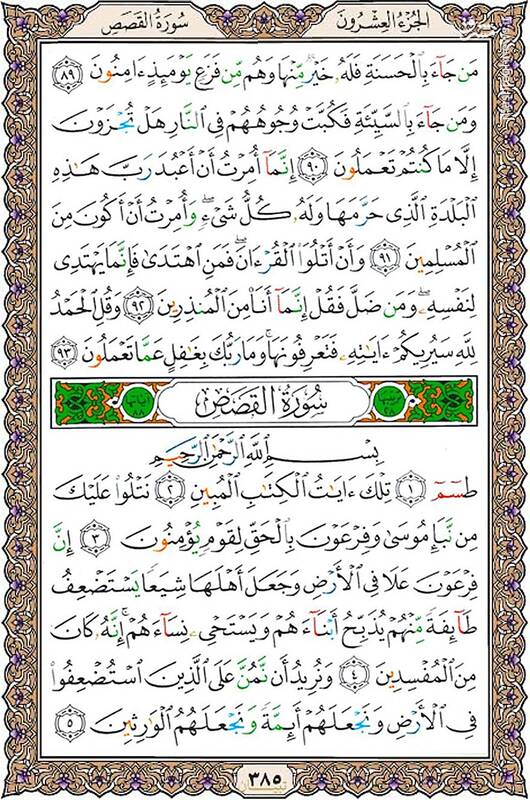 الجُزءُ العِشرُونَ
سُورَةُ القَصَصِ
مَن جَآءَ بِالْحَسَنَةِ فَلَهُ خَيْرٌ مِّنْهَا وَهُم مِّن فَزَعٍ يَوْمَئِذٍ ءَامِنُونَ ٨٩
وَمَن جَآءَ بِالسَّيِّئَةِ فَكُبَّتْ وُجُوهُهُمْ فِى النَّارِ هَلْ تُجْزَوْنَ
إِلَّا مَا كُنتُمْ تَعْمَلُونَ ٩٠ إِنَّمَآ أُمِرْتُ أَنْ أَعْبُدَ رَبَّ هَٰذِهِ
الْبَلْدَةِ الَّذِى حَرَّمَهَا وَلَهُ كُلُّ شَىْءٍ ۖ وَأُمِرْتُ أَنْ أَكُونَ مِنَ
الْمُسْلِمِينَ ٩١ وَأَنْ أَتْلُوَا۟ الْقُرْءَانَ ۖ فَمَنِ اهْتَدَىٰ فَإِنَّمَا يَهْتَدِى
لِنَفْسِهِ ۖ وَمَن ضَلَّ فَقُلْ إِنَّمَآ أَنَا۠ مِنَ الْمُنذِرِينَ ٩٢ وَقُلِ الْحَمْدُ
لِلَّهِ سَيُرِيكُمْ ءَايَٰتِهِ فَتَعْرِفُونَهَا ۚ وَمَا رَبُّكَ بِغَٰفِلٍ عَمَّا تَعْمَلُونَ ٩٣
سُورَةُ الْقَصَصِ
بِسْمِ اللَّهِ الرَّحْمَٰنِ الرَّحِيمِ
طسٓمٓ ١ تِلْكَ ءَايَٰتُ الْكِتَٰبِ الْمُبِينِ ٢ نَتْلُوا۟ عَلَيْكَ
مِن نَّبَإِ مُوسَىٰ وَفِرْعَوْنَ بِالْحَقِّ لِقَوْمٍ يُؤْمِنُونَ ٣ إِنَّ
فِرْعَوْنَ عَلَا فِى الْأَرْضِ وَجَعَلَ أَهْلَهَا شِيَعًا يَسْتَضْعِفُ
طَآئِفَةً مِّنْهُمْ يُذَبِّحُ أَبْنَآءَهُمْ وَيَسْتَحْىِ نِسَآءَهُمْ ۚ إِنَّهُ كَانَ
مِنَ الْمُفْسِدِينَ ٤ وَنُرِيدُ أَن نَّمُنَّ عَلَى الَّذِينَ اسْتُضْعِفُوا۟
فِى الْأَرْضِ وَنَجْعَلَهُمْ أَئِمَّةً وَنَجْعَلَهُمُ الْوَٰرِثِينَ ٥
٣٨٥